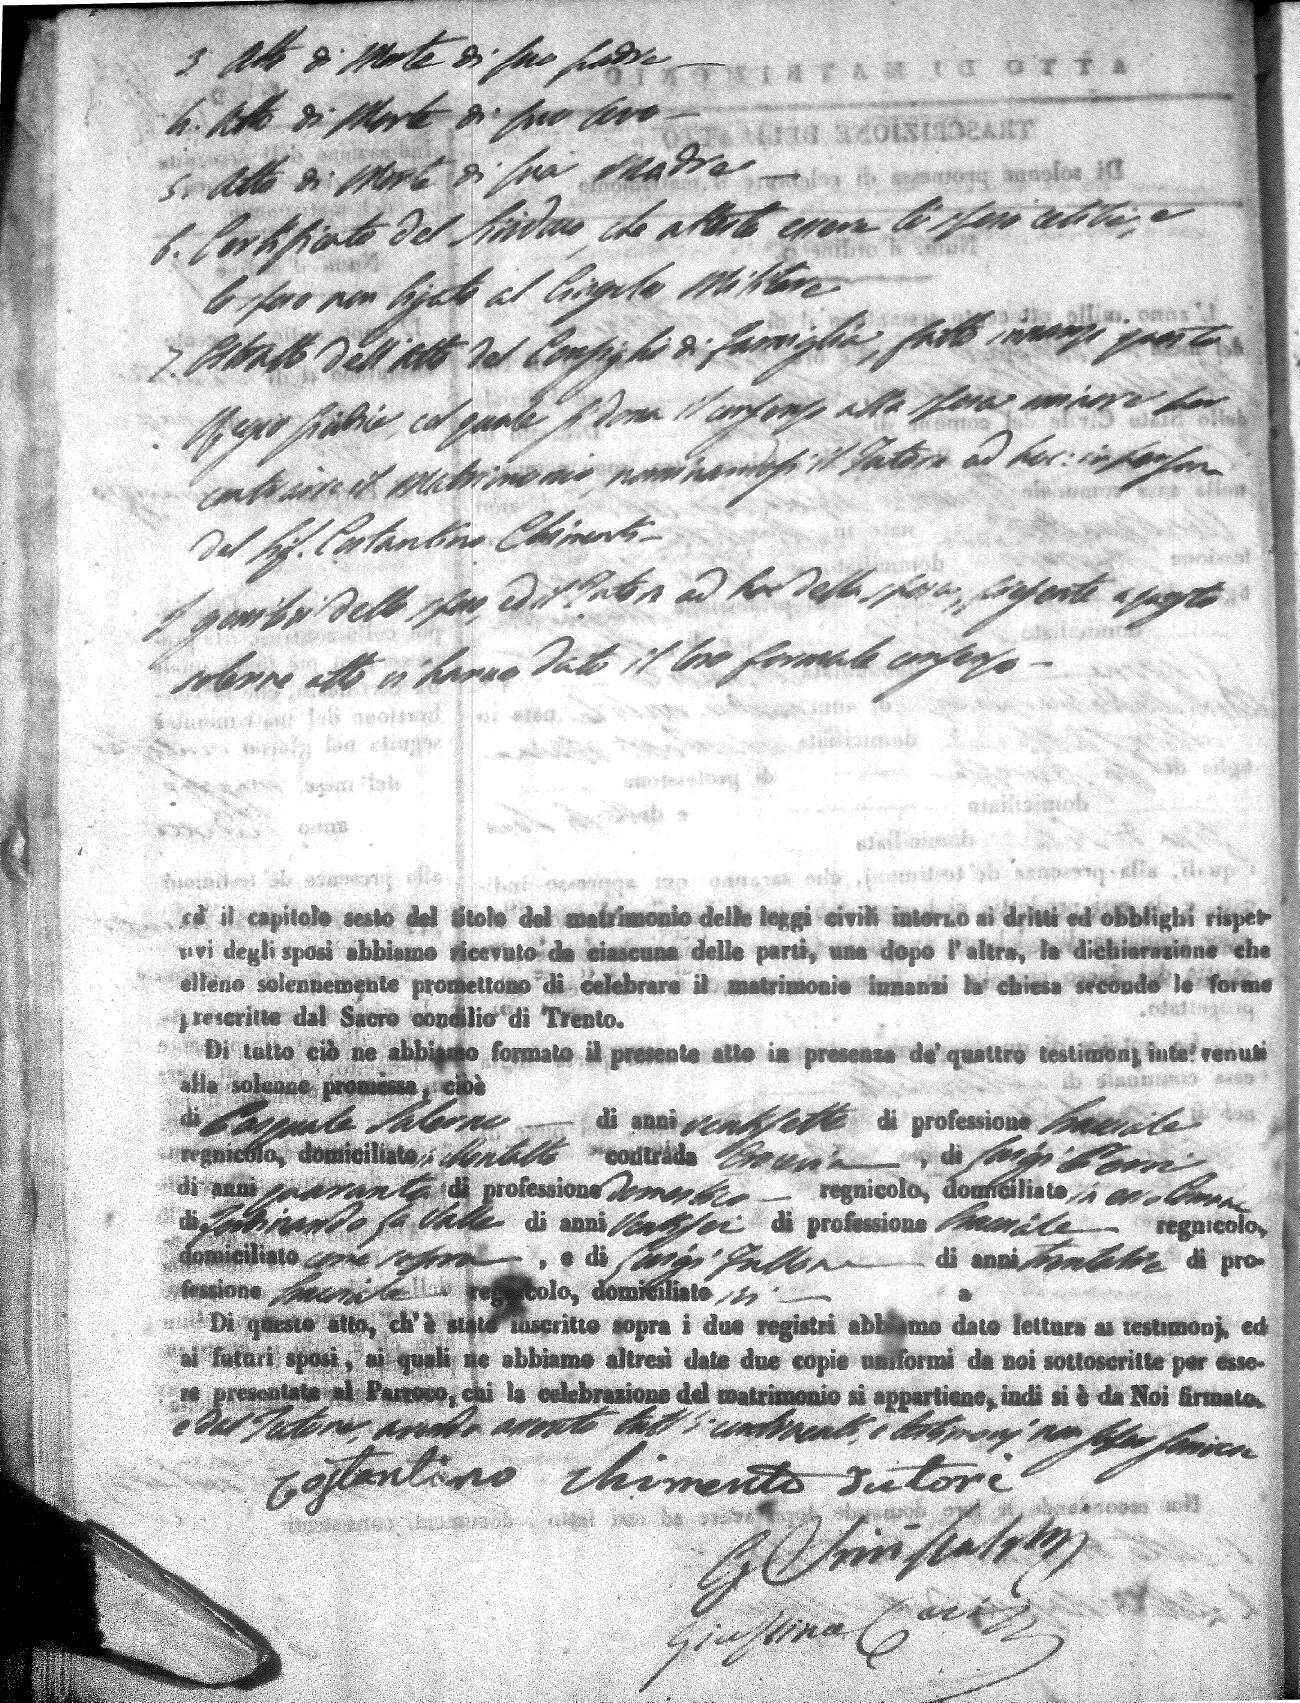 3. Atto di Morte di suo padre
4. Atto di Morte di suo Avo
5. Atto di Morte di sua Madre
6. Certificato del Sindaco, che attesta essere li sposi celibi, e
lo sposo non ligato al Cingolo Militare
7. Estratto dell'Atto del Consiglio di famiglia, fatto innanzi questo
Regio Giudice, col quale si dona il consenso alla sposa minore per
contrarre il Matrimonio, nominandosi il Tutore ad hoc: in persona
del Sig. Costantino Chimenti
I genitori dello sposo, ed il Tutore ad hoc della sposa, presente a questo
solenne atto ci hanno dato il loro formale consenso
ed il capitolo sesto del titolo del matrimonio delle leggi civili intorno ai dritti ed obblighi rispet-
tivi degli sposi abbiamo ricevuto da ciascuna delle parti, una dopo l'altra, la dichiarazione che
elleno solennemente promettono di celebrare il matrimonio innanzi la chiesa secondo le forme
prescritte dal Sacro concilio di Trento.
Di tutto ciò ne abbiamo formato il presente atto in presenza de' quattro testimonj intervenuti
alla solenne promessa, cioè
di Pasquale Salerno di anni ventisette di professione bracciale
regnicolo, domiciliato contrada , di Luigi Perri
di anni quaranta di professione domestico regnicolo, domiciliato in
di Ferdinando La Valle di anni ventisei di professione bracciale regnicolo,
domiciliato come sopra , e di Luigi di anni di pro-
fessione bracciale regnicolo, domiciliato ivi
Di questo atto, ch'è stato inscritto sopra i due registri abbiamo dato lettura ai testimonj, ed
ai futuri sposi, ai quali ne abbiamo altresì date due copie uniformi da noi sottoscritte per esse-
re presentate al Parroco, cui la celebrazione del matrimonio si appartiene, indi si è da Noi firmato
e dal Tutore, avendo asserito tutti i contraenti, e testimonj non saper scrivere
Costantino Chimento Tutore